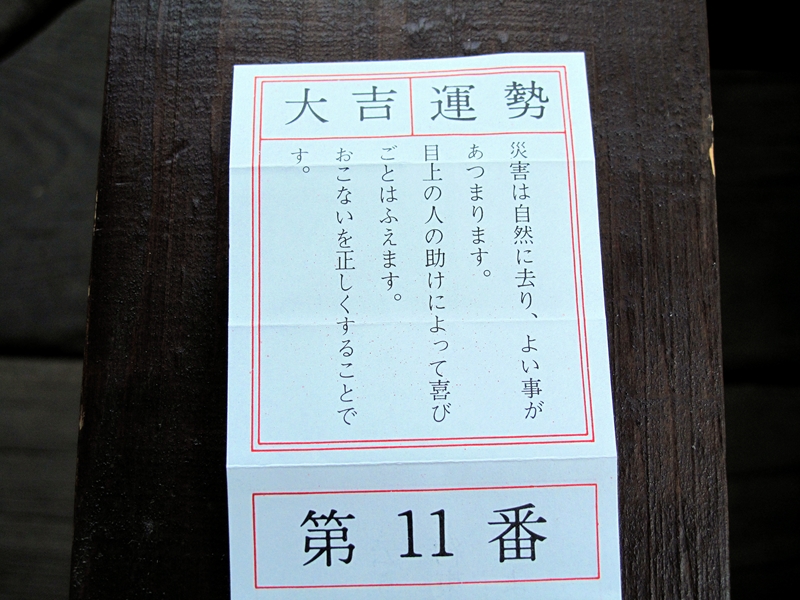 運勢
大吉
災害は自然に去り、よい事が
あつまります。
目上の人の助けによって喜び
ごとはふえます。
おこないを正しくすることで
す。
第11番